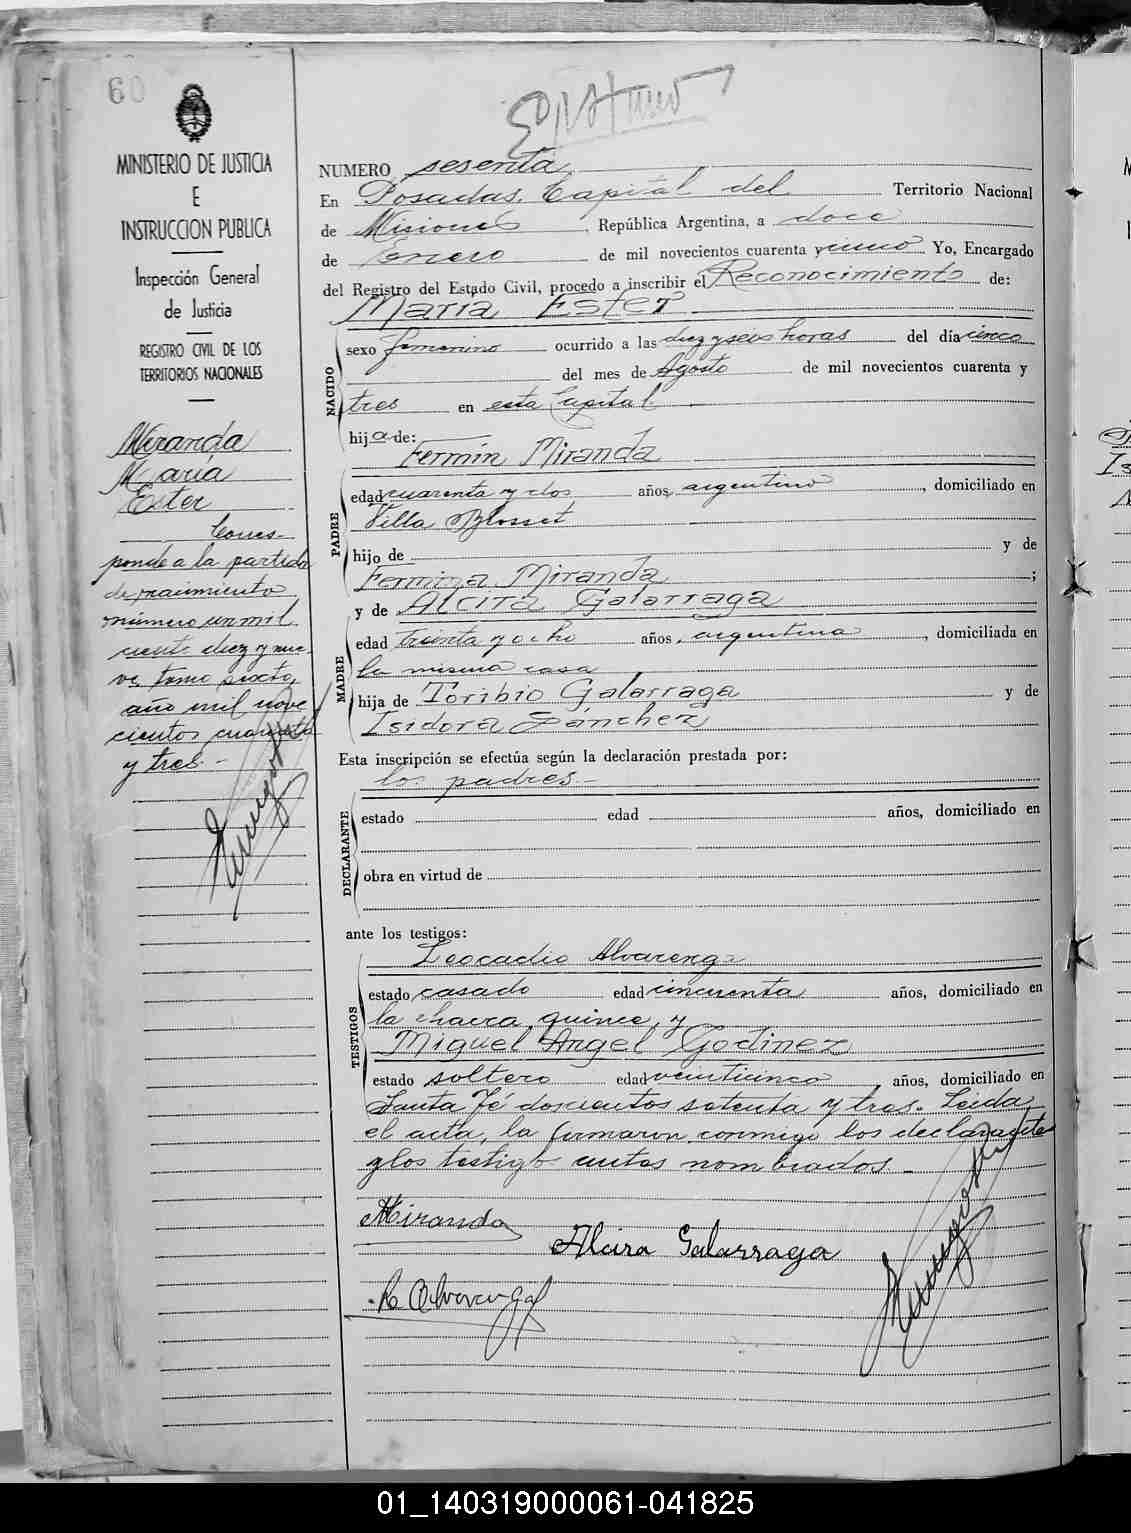 60
MINISTERIO DE JUSTICIA
E
INSTRUCCION PUBLICA
Inspección General
de Justicia
REGISTRO CIVIL DE LOS
TERRITORIOS NACIONALES
Miranda
María
Ester
Corres-
ponde a la partida
de nacimiento
número un mil
ciento diez y nue-
ve, tomo sexto,
año mil nove
cientos cuarenta
y tres.-
NUMERO sesenta
En Posadas, Capital del Territorio Nacional
de Misiones, República Argentina, a doce
de Enero de mil novecientos cuarenta y cinco Yo, Encargado
del Registro del Estado Civil, procedo a inscribir el Reconocimiento de:
María Ester
NACIDO
sexo femenino ocurrido a las diez y seis horas del día cinco
del mes de Agosto de mil novecientos cuarenta y
tres en esta Capital
hija de:
Fermín Miranda
PADRE
edad cuarenta y dos años, argentino, domiciliado en
Villa Blosset
hijo de y de
Fermina Miranda ;
y de Alcira Galarraga
MADRE
edad treinta y ocho años, argentina, domiciliada en
la misma casa
hija de Toribio Galarraga y de
Isidora Sánchez
Esta inscripción se efectúa según la declaración prestada por:
los padres-
DECLARANTE
estado edad años, domiciliado en
obra en virtud de
ante los testigos:
Leocadio Alvarenga
TESTIGOS
estado casado edad cincuenta años, domiciliado en
la chacra quince, y
Miguel Angel Godinez
estado soltero edad veinticinco, años, domiciliado en
Santa Fé doscientos setenta y tres. Leída
el acta, la firmaron conmigo los declarantes
y los testigos antes nombrados.-
Miranda
Alcira Galarraga
L Alvarenga
01_140319000061-041825